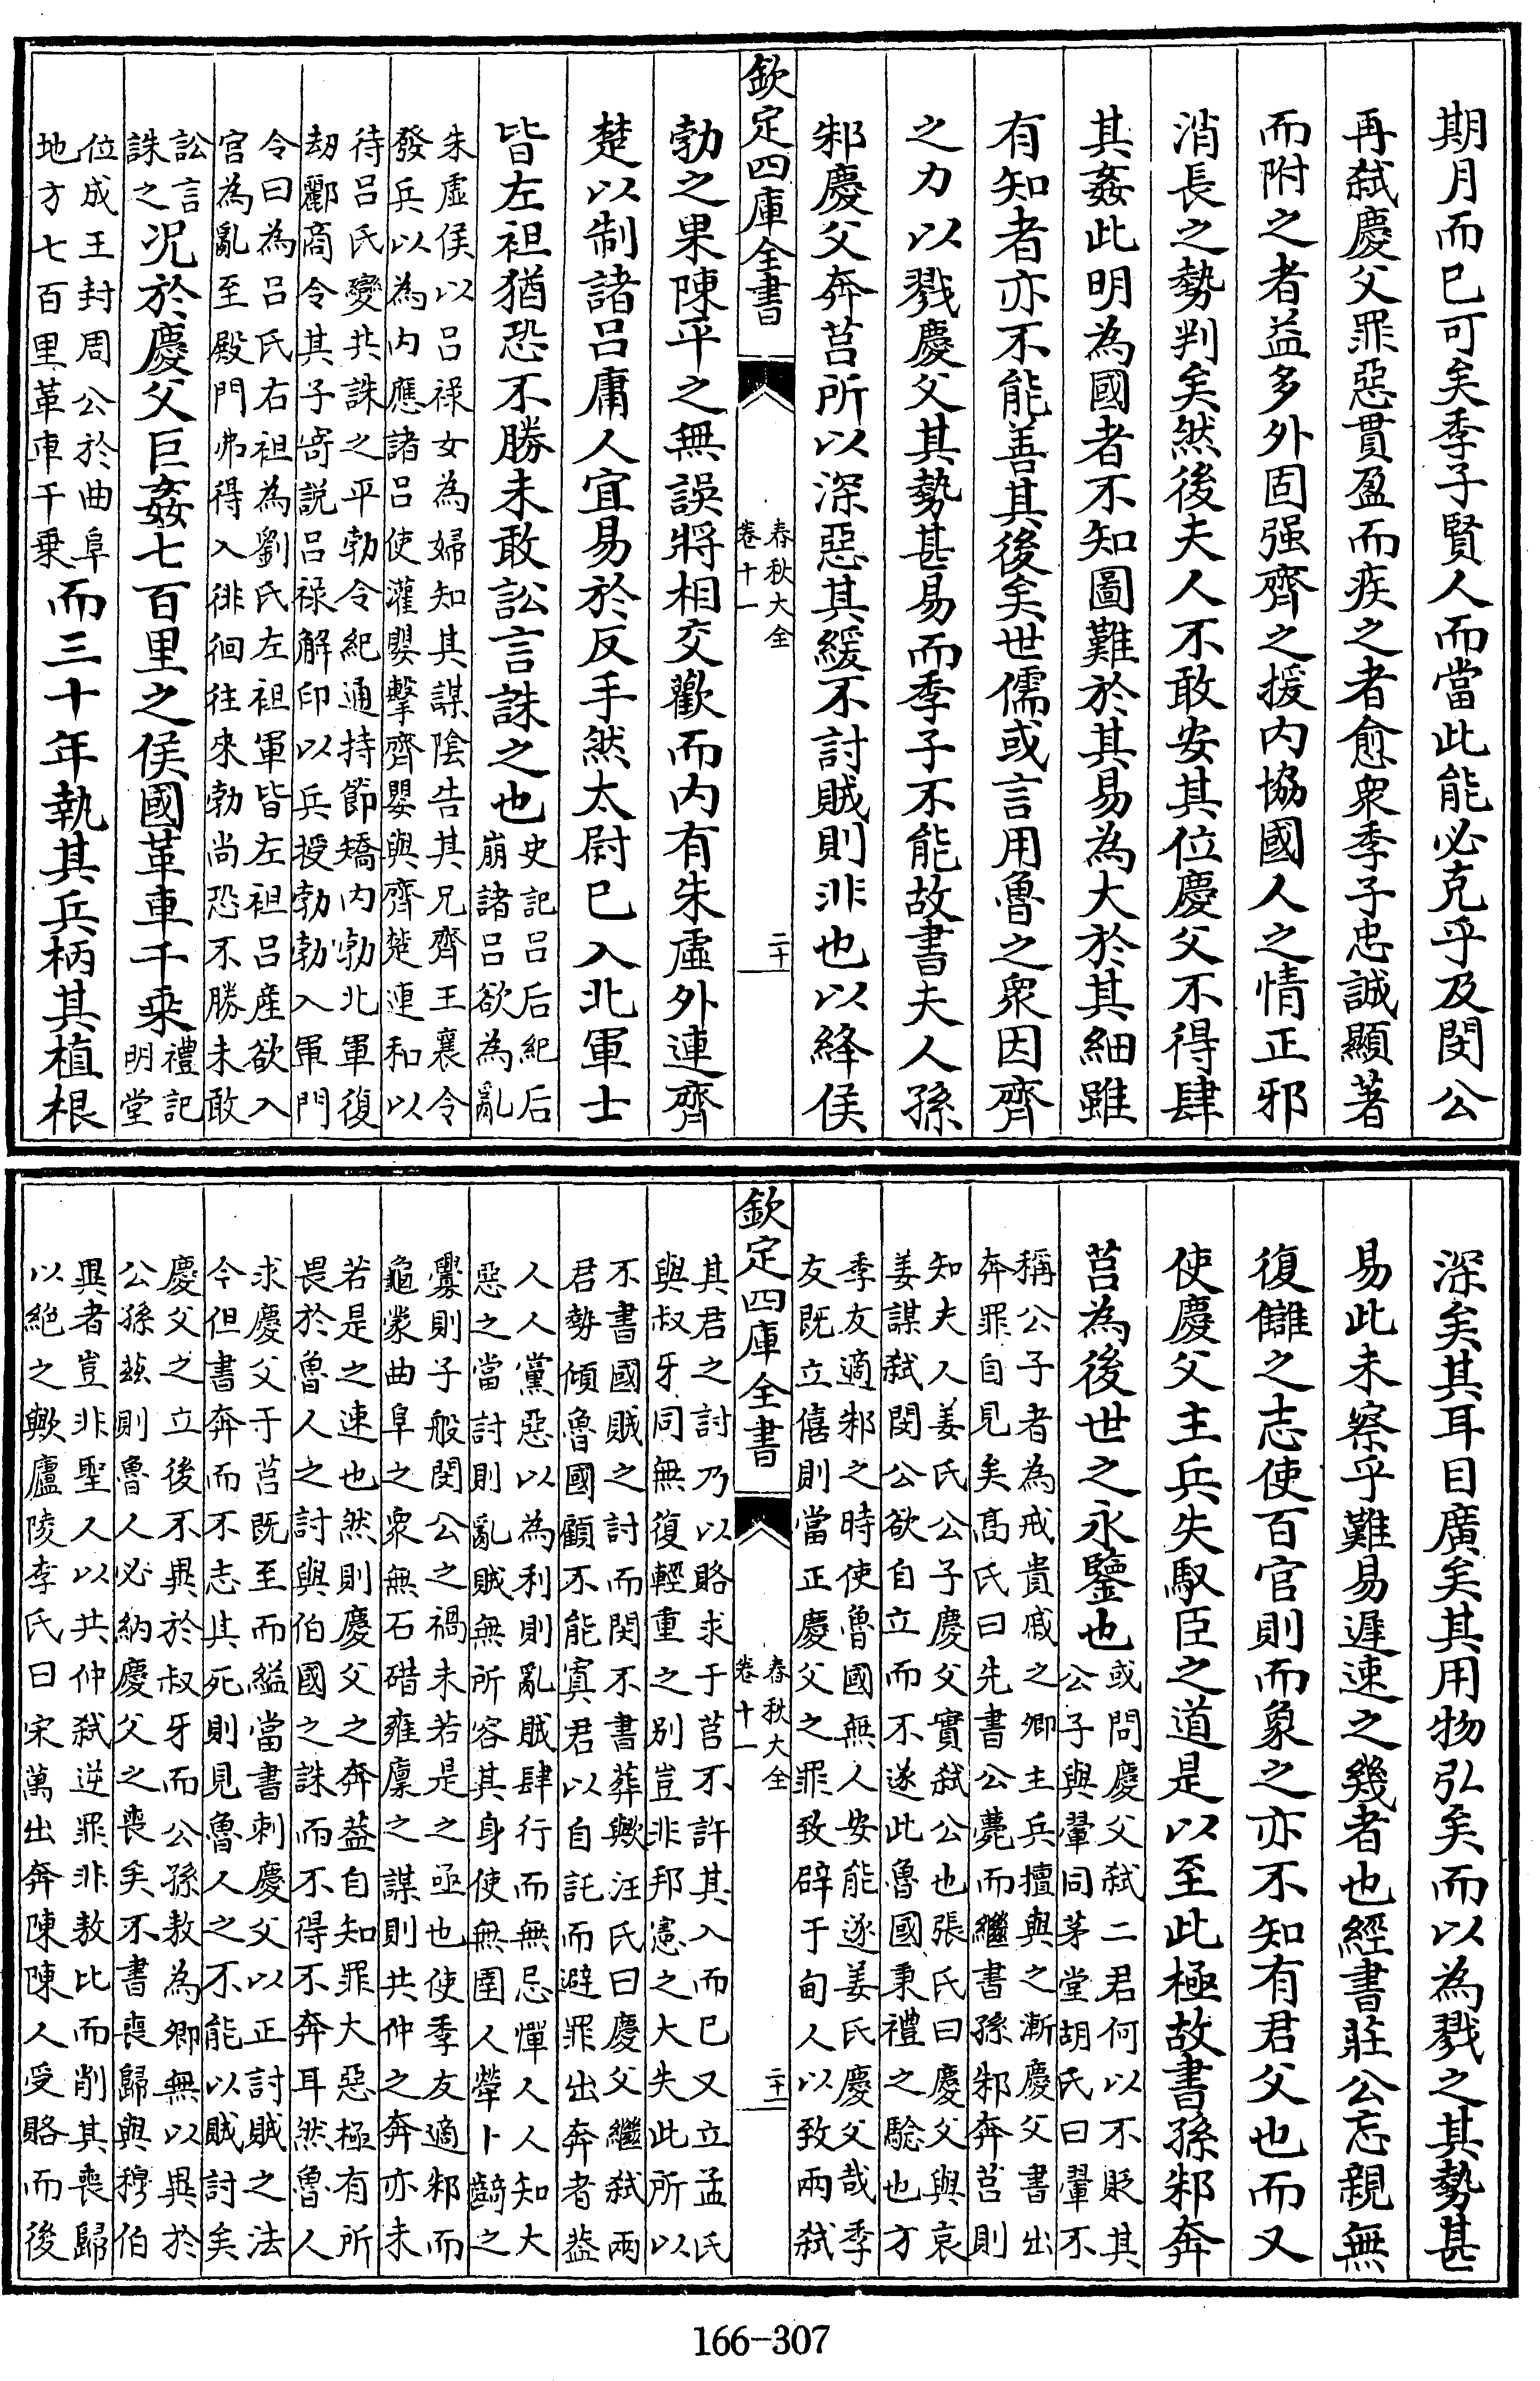 期月而已可矣季子賢人而當此能必克乎及閔公
再弑慶父罪惡貫盈而疾之者愈衆季子忠誠顯著
而附之者益多外固强齊之援内協國人之情正邪
消長之勢判矣然後夫人不敢安其位慶父不得肆
其姦此明為國者不知圖難於其易為大於其細雖
有知者亦不能善其後矣世儒或言用魯之衆因齊
之力以戮慶父其勢甚易而季子不能故書夫人孫
邾慶父奔莒所以深惡其緩不討賊則非也以絳侯
欽定四庫全書
春秋大全
卷十一
二十
勃之果陳平之無誤將相交歡而内有朱虛外連齊
楚以制諸吕庸人宜易於反手然太尉已入北軍士
皆左袒猶恐不勝未敢訟言誅之也
史記吕后紀后
崩諸吕欲為亂
朱虛侯以吕祿女為婦知其謀陰告其兄齊王襄令
發兵以為内應諸吕使灌嬰擊齊嬰與齊楚連和以
待吕氏變共誅之平勃令紀通持節矯内勃北軍復
刼酈商令其子寄説吕祿解印以兵授勃勃入軍門
令曰為吕氏右袒為劉氏左袒軍皆左袒吕産欲入
宫為亂至殿門弗得入徘徊往來勃尚恐不勝未敢
訟言
誅之
况於慶父巨姦七百里之侯國革車千乘
禮記
明堂
位成王封周公於曲阜
地方七百里革車千乗
而三十年執其兵柄其植根
深矣其耳目廣矣其用物弘矣而以為戮之其勢甚
易此未察乎難易遲速之幾者也經書莊公忘親無
復讎之志使百官則而象之亦不知有君父也而又
使慶父主兵失馭臣之道是以至此極故書孫邾奔
莒為後世之永鑒也
或問慶父弑二君何以不貶其
公子與翬同茅堂胡氏曰翬不
稱公子者為戒貴戚之卿主兵擅與之漸慶父書出
奔罪自見矣髙氏曰先書公薨而繼書孫邾奔莒則
知夫人姜氏公子慶父實弑公也張氏曰慶父與哀
姜謀弑閔公欲自立而不遂此魯國秉禮之騐也方
季友適邾之時使魯國無人安能遂姜氏慶父哉季
友既立僖則當正慶父之罪致辟于甸人以致兩弑
欽定四庫全書
春秋大全
卷十一
二十一
其君之討乃以賂求于莒不許其入而已又立孟氏
與叔牙同無復輕重之别豈非邦憲之大失此所以
不書國賊之討而閔不書葬歟汪氏曰慶父繼弑兩
君勢傾魯國顧不能寘君以自託而避罪出奔者葢
人人黨惡以為利則亂賊肆行而無忌憚人人知大
惡之當討則亂賊無所容其身使無圉人犖卜齮之
釁則子般閔公之禍未若是之亟也使季友適邾而
龜蒙曲阜之衆無石碏雍廩之謀則共仲之奔亦未
若是之速也然則慶父之奔葢自知罪大惡極有所
畏於魯人之討與伯國之誅而不得不奔耳然魯人
求慶父于莒既至而縊當書刺慶父以正討賊之法
今但書奔而不志其死則見魯人之不能以賊討矣
慶父之立後不異於叔牙而公孫敖為卿無以異於
公孫玆則魯人必納慶父之喪矣不書喪歸與穆伯
異者豈非聖人以共仲弑逆罪非敖比而削其喪歸
以絶之歟廬陵李氏曰宋萬出奔陳陳人受賂而後
166-307